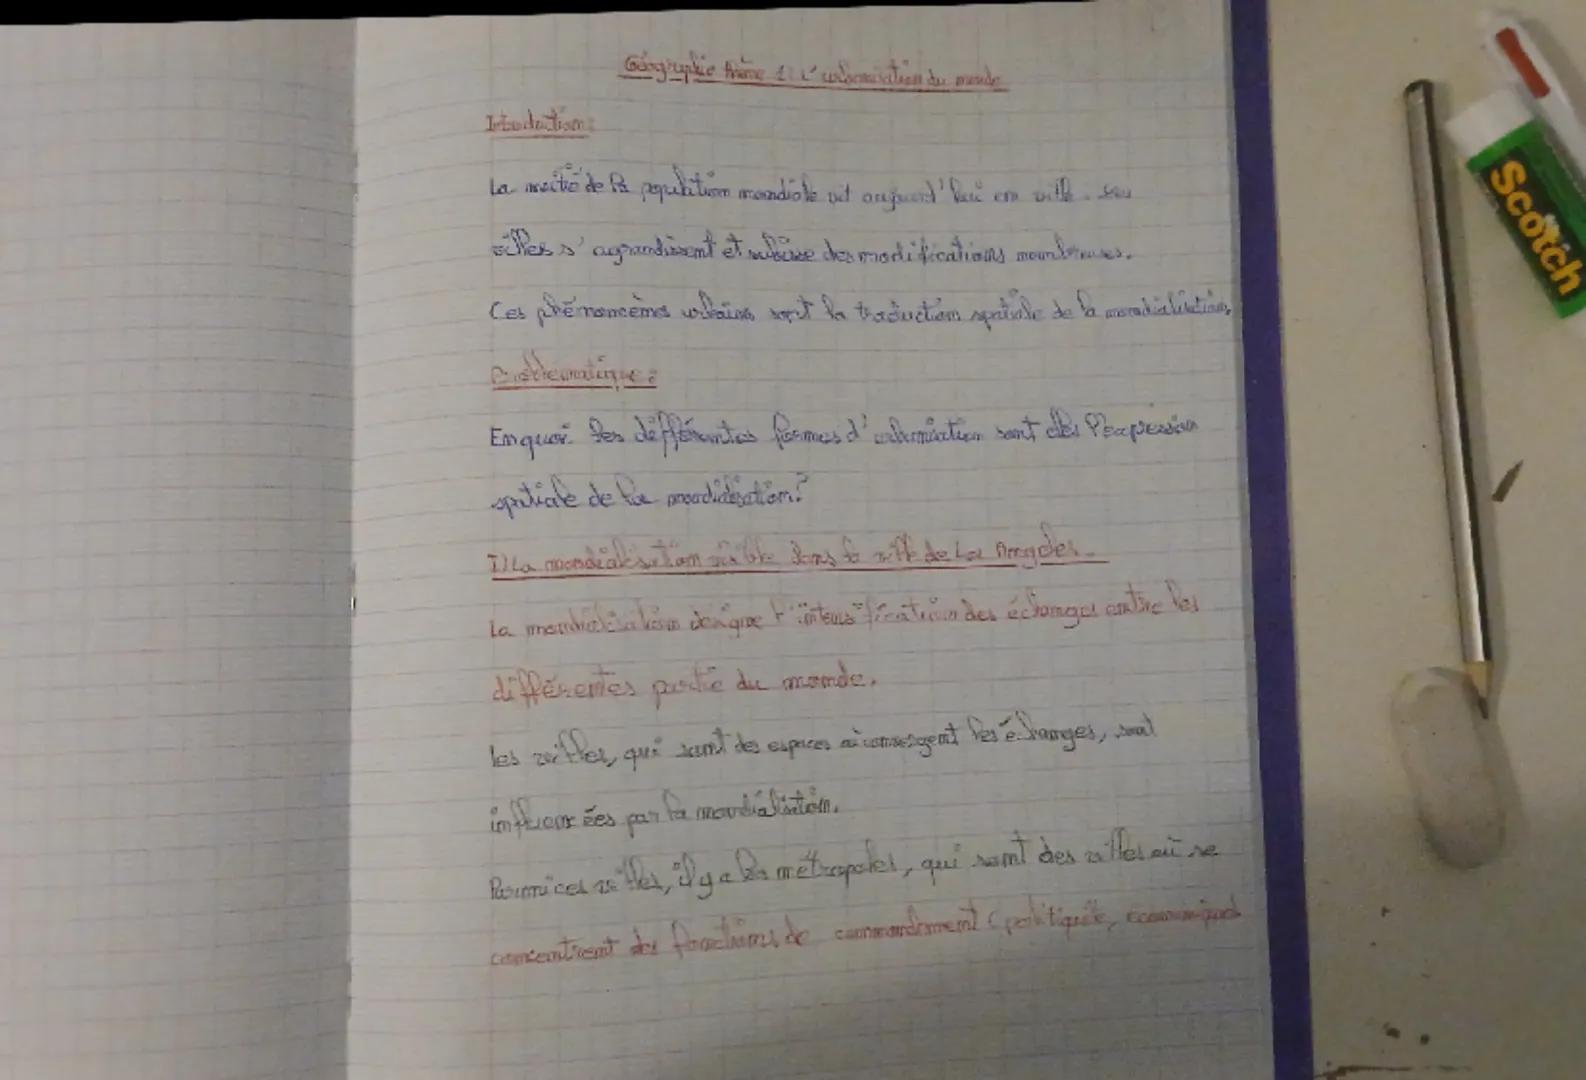 Géographie thème 1: L'urbanisation du monde
Introduction:
La moitié de la population mondiale vit aujourd'hui en ville. Ses
villes s'agrandissent et subisse des modifications nombreuses.
Ces phénomènes urbains sont la traduction spatiale de la mondialisation,
Problématique:
En quoi les différentes formes d'urbanisation sont elles l'expression
spatiale de la mondialisation?
I) La mondialisation visible dans la ville de Los Angeles.
La mondialisation désigne l'intensification des échanges entre les
différentes partie du monde.
Les villes, qui sont des espaces où convergent les échanges, sont
influencées par la mondialisation.
Parmi ces villes, il y a les métropoles, qui sont des villes où se
concentrent des fonctions de commandement (politique, économique
Scotch